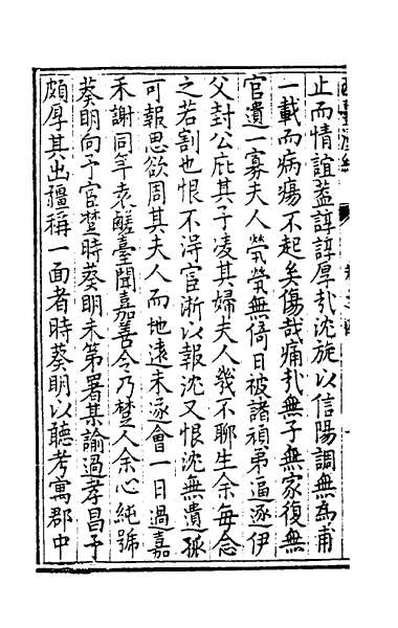 止而情誼葢諄諄厚扎沈旋以信陽調無為甫
一載而病瘍不起矣傷哉痛扎無子無家復無
官遺一寡夫人煢煢無倚日被諸頑弟逼逐伊
父封公庇其子凌其婦夫人幾不聊生余每念
之若割也恨不淂官浙以報沈又恨沈無遺孤
可報思欲周其夫人而地遠未遂會一日過嘉
禾謝同年袁鹺臺聞嘉善令乃楚人余心純號
葵明向予官楚時葵明未第署某諭過孝昌予
頗厚其出疆稱一面者時葵明以聽考寓郡中